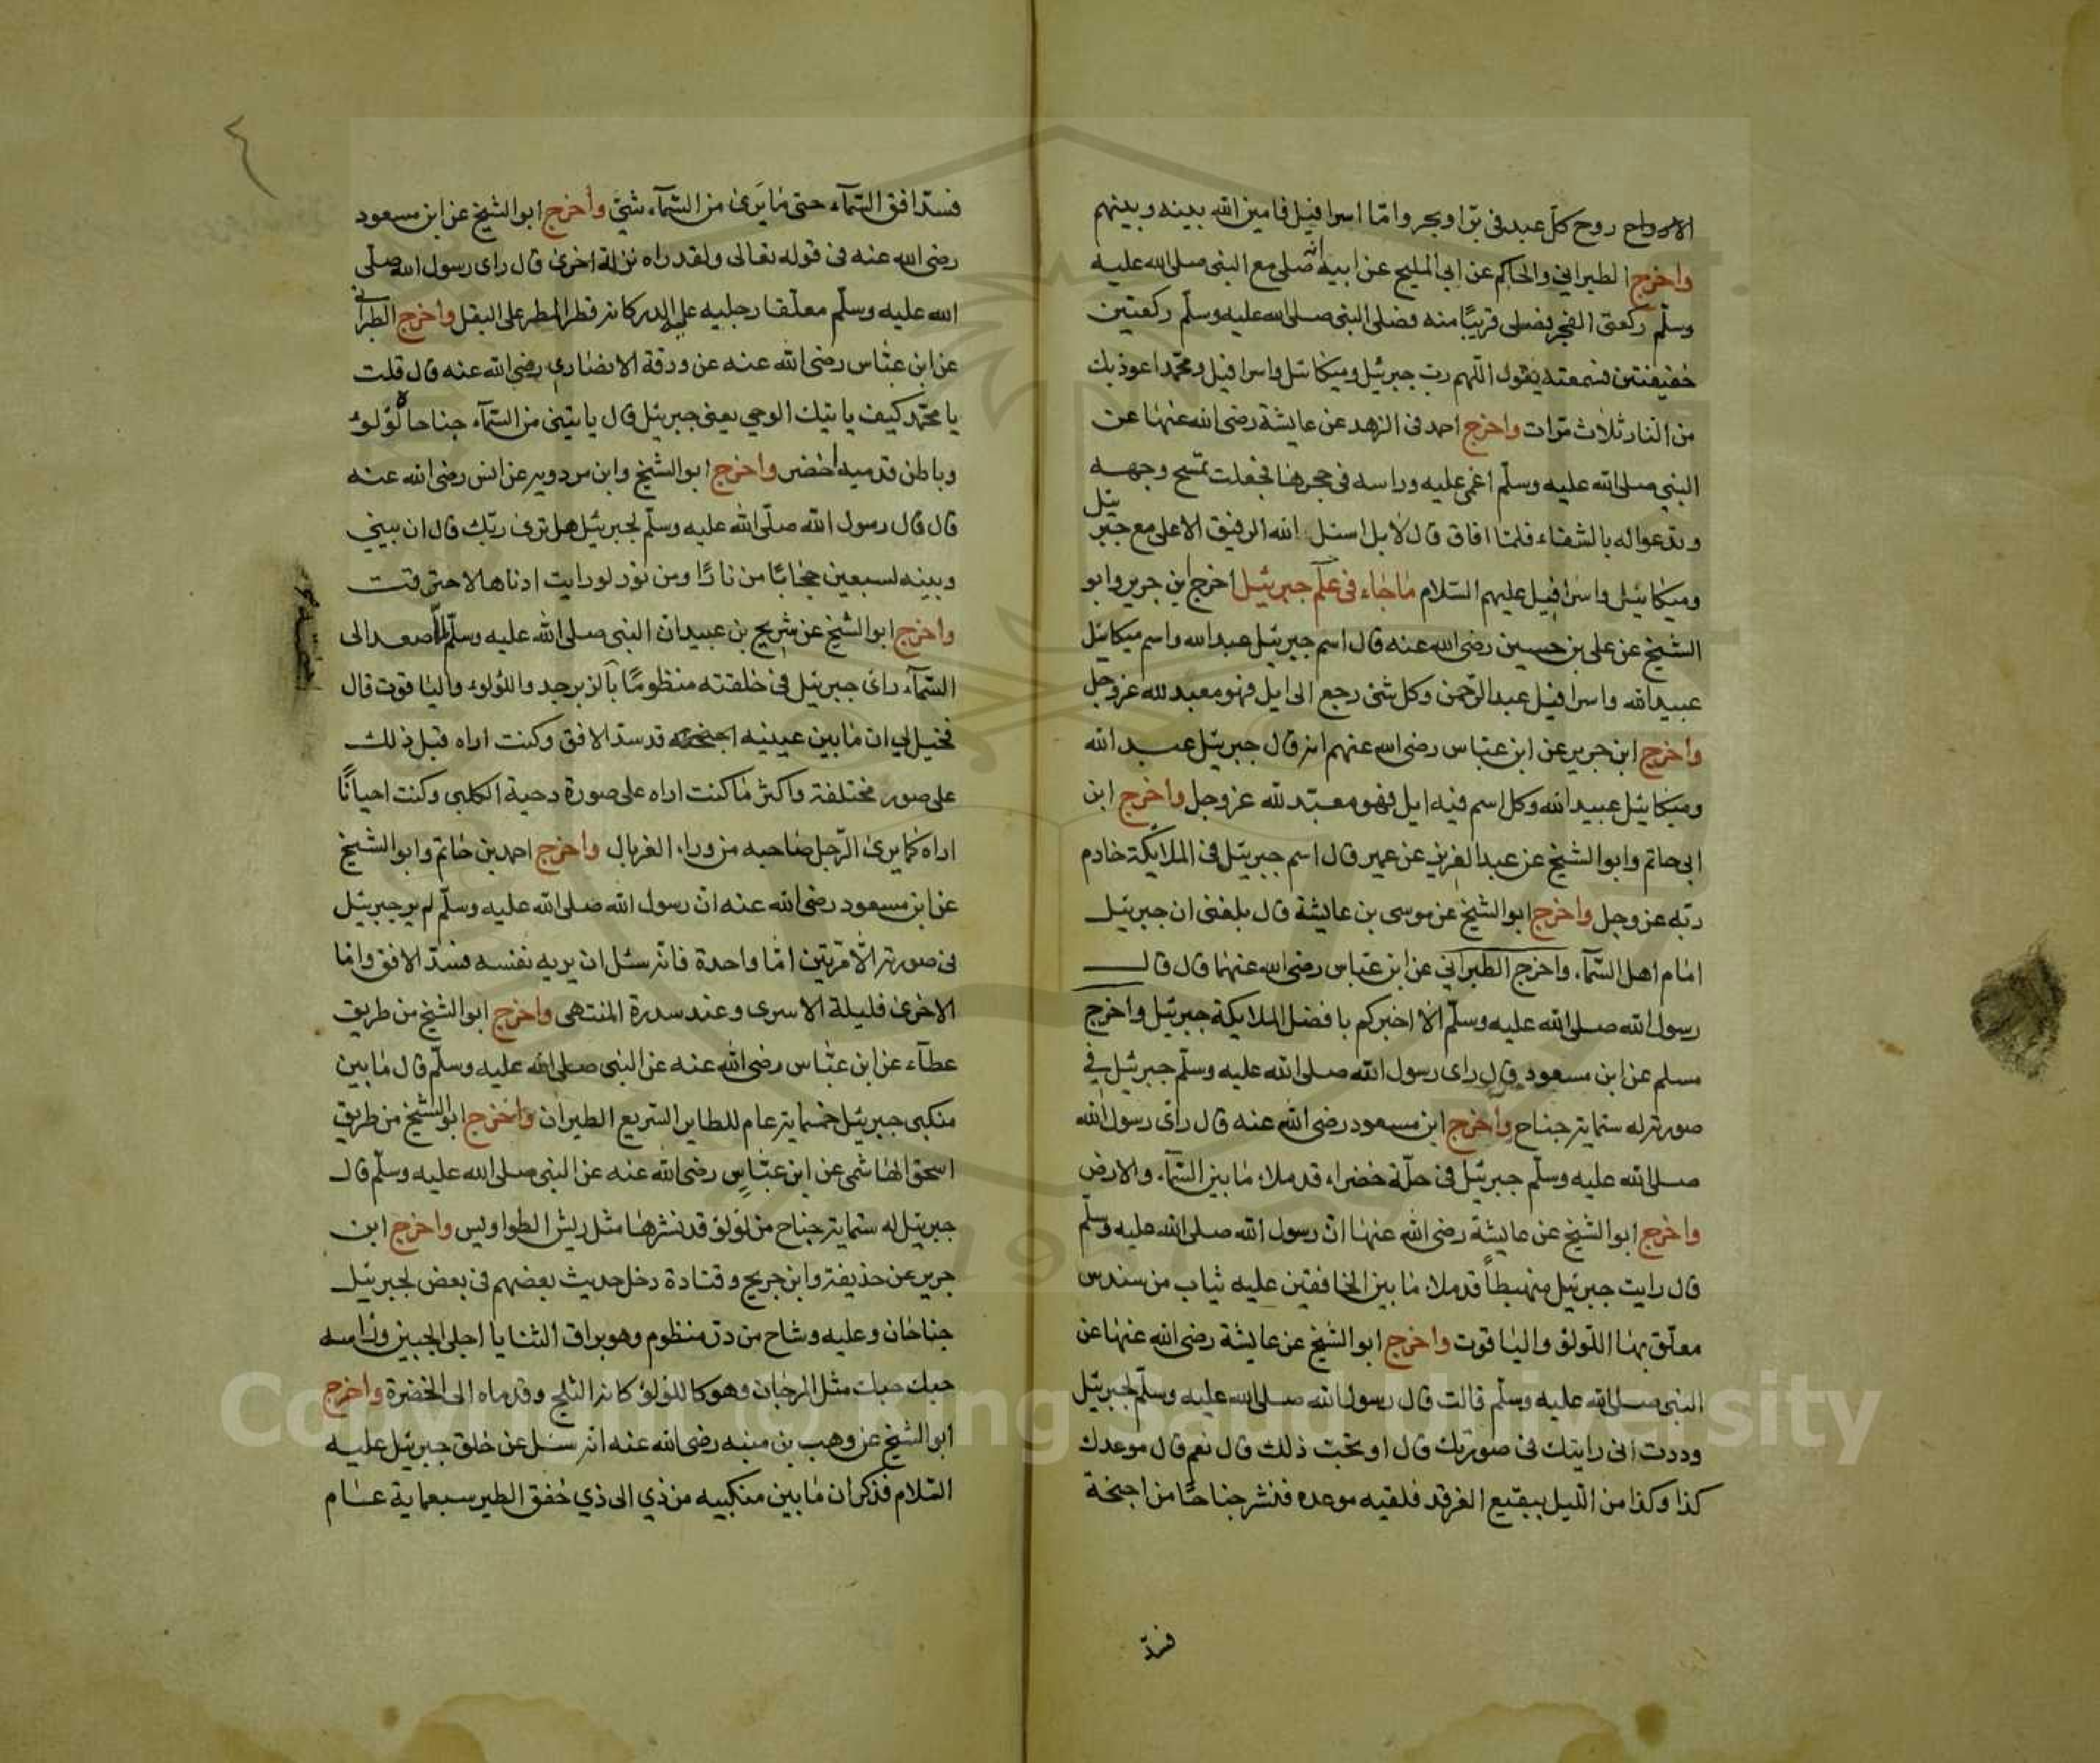 الارواح روح كل عبد فى برّ او بحر وامّا اسرافيل فامين الله بينه وبينهم
واخرج الطبراني والحاكم عن ابى المليح عن ابيه انّه صلى مع النبى صلى الله عليه
وسلّم ركعتى الفجر فصلى قريبًا منه فصلى النبى صلى الله عليه وسلّم ركعتين
خفيفتين فسمعته يقول اللّهم ربّ جبرئيل وميكائيل واسرافيل ومحمّد اعوذ بك
من النار ثلاث مرّات واخرج احمد فى الزهد عن عايشة رضى الله عنها عن
النبي صلى الله عليه وسلّم اغمى عليه وراسه فى حجرها فجعلت تمسح وجهه
وتدعوا له بالشفاء فلمّا افاق قال لا بل اسئل الله الرفيق الاعلى مع جبرئيل
وميكائيل واسرافيل عليهم السّلام ما جاء فى علم جبرئيل اخرج ابن جرير وابو
الشيخ عن على بن حسين رضى الله عنه قال اسم جبرئيل عبد الله واسم ميكائيل
عبيد الله واسرافيل عبد الرّحمن وكل شئ رجع الى ايل فهو معبد لله عز وجل
واخرج ابن جرير عن ابن عبّاس رضى الله عنهم انه قال جبرئيل عبد الله
وميكائيل عبيد الله وكل اسم فيه ايل فهو معبّد لله عز وجل واخرج ابن
ابى حاتم وابو الشيخ عن عبد العزيز عن عمير قال اسم جبرئيل فى الملايكة خادم
ربّه عز وجل واخرج ابو الشيخ عن موسى بن عايشة قال بلغنى ان جبرئيل
امام اهل السّمآء واخرج الطبراني عن ابن عبّاس رضى الله عنهما قال قال
رسول الله صلى الله عليه وسلّم الا اخبركم بافضل الملايكة جبرئيل واخرج
مسلم عن ابن مسعود قال راى رسول الله صلى الله عليه وسلّم جبرئيل في
صورته له ستماية جناح واخرج ابن مسعود رضى الله عنه قال راى رسول الله
صلى الله عليه وسلّم جبرئيل فى حلّة خضراء قد ملاء ما بين السّمآء والارض
واخرج ابو الشيخ عن عايشة رضى الله عنها انّ رسول الله صلى الله عليه وسلّم
قال رايت جبرئيل منهبطاً قد ملاء ما بين الخافقين عليه ثياب من سندس
معلّق بها اللّولؤ والياقوت واخرج ابو الشيخ عن عايشة رضى الله عنها عن
النبى صلى الله عليه وسلّم قالت قال رسول الله صلى الله عليه وسلّم لجبرئيل
وددت انى رايتك فى صورتك قال او تحبّ ذلك قال نعم قال موعدك
كذا وكذا من اللّيل ببقيع الغرقد فلقيه موعده فنشر جناحًا من اجنحة
فسدّ
٤
فسدّ افق السّمآء حتى ما يَرى من السّمآء شئ واخرج ابو الشيخ عن ابن مسعود
رضى الله عنه فى قوله تعالى ولقد راه نزلة اخرى قال راى رسول الله صلّى
الله عليه وسلّم معلّقا رجليه على الدر كانه قطر المطر على البقل واخرج الطبرانى
عن ابن عبّاس رضى الله عنه عن ورقة الانصارى رضى الله عنه قال قلت
يا محمّد كيف ياتيك الوحي يعنى جبرئيل قال ياتينى من السّمآء جناحاه لؤلؤ
وباطن قدميه اخضر واخرج ابو الشيخ وابن مردويه عن انس رضى الله عنه
قال قال رسول الله صلّى الله عليه وسلّم لجبرئيل هل ترى ربّك قال ان بيني
وبينه لسبعين حجابًا من نارًا ومن نور لو رايت ادناها لاحترقت
واخرج ابو الشيخ عن شريح بن عبيد ان النبى صلى الله عليه وسلّم لمّا صعد الى
السّمآء راى جبرئيل فى خلقته منظومًا بالزبرجد واللؤلؤ والياقوت قال
فخيل لي ان ما بين عينيه اجنحته قد سدّ الافق وكنت اراه قبل ذلك
على صور مختلفة واكثر ما كنت اراه على صورة دحية الكلبى وكنت احيانًا
اراه كما يرى الرّجل صاحبه من وراء الغربال واخرج احمد بن حاتم وابو الشيخ
عن ابن مسعود رضى الله عنه انّ رسول الله صلى الله عليه وسلّم لم ير جبرئيل
فى صورته الّا مرّتين امّا واحدة فانّه سئل ان يريه نفسه فسدّ الافق وامّا
الاخرى فليلة الاسرى وعند سدرة المنتهى واخرج ابو الشيخ من طريق
عطآء عن ابن عبّاس رضى الله عنه عن النبى صلى الله عليه وسلّم قال ما بين
منكبى جبرئيل خمسماية عام للطاير السّريع الطيران واخرج ابو الشيخ من طريق
اسحق الهاشمى عن ابن عبّاس رضى الله عنه عن النبى صلى الله عليه وسلّم قال
جبرئيل له ستماية جناح من لؤلؤ قد نشرها مثل ريش الطواويس واخرج ابن
جرير عن حذيفة وابن جريج وقتادة دخل حديث بعضهم فى بعض لجبرئيل
جناحان وعليه وشاح من درّ منظوم وهو براق الثنايا اجلى الجبين وراسه
حبك حبك مثل المرجان وهو كاللؤلؤ كانه الثلج وقدماه الى الخضرة واخرج
ابو الشيخ عن وهب بن منبه رضى الله عنه انّه سئل عن خلق جبرئيل عليه
السّلام فذكر ان ما بين منكبيه من ذي الى ذي خفق الطير سبعماية عام
Copyright © King Saud University